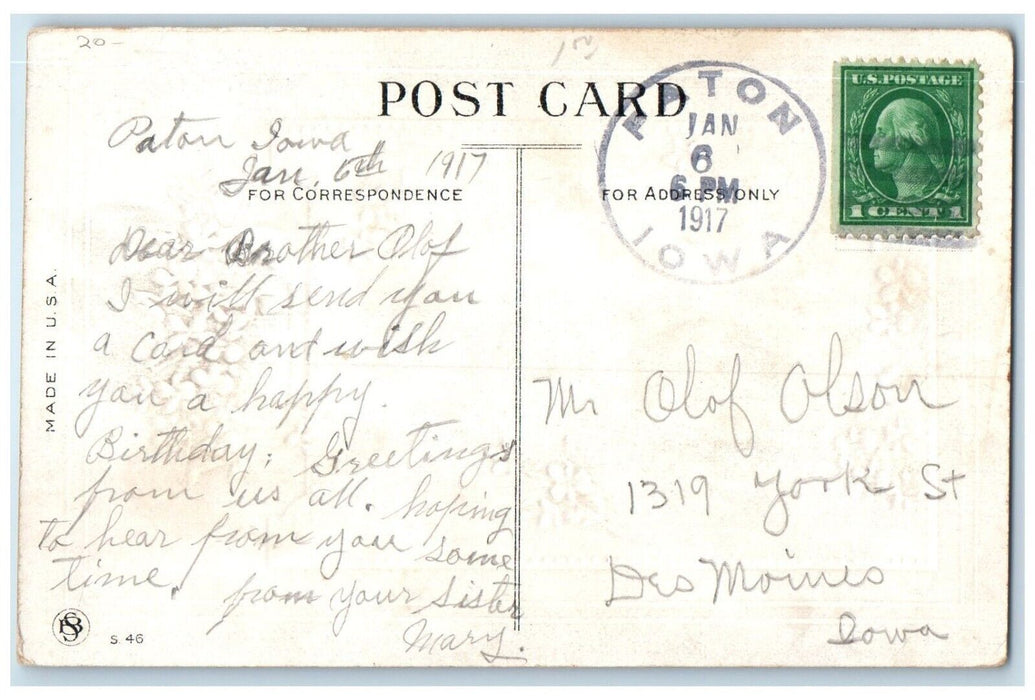 20-
POST CARD
PATON
JAN
6
6 PM
1917
IOWA
U.S. POSTAGE
1 CENT 1
Paton Iowa
Jan, 6th 1917
FOR CORRESPONDENCE
FOR ADDRESS ONLY
Dear Brother Olof
I will send you
a card and wish
you a happy.
Birthday; Greetings
from us all. hoping
to hear from you some
time.
from your Sister
Mary.
Mr Olof Olson
1319 York St
Des Moines
Iowa
MADE IN U.S.A.
S. 46